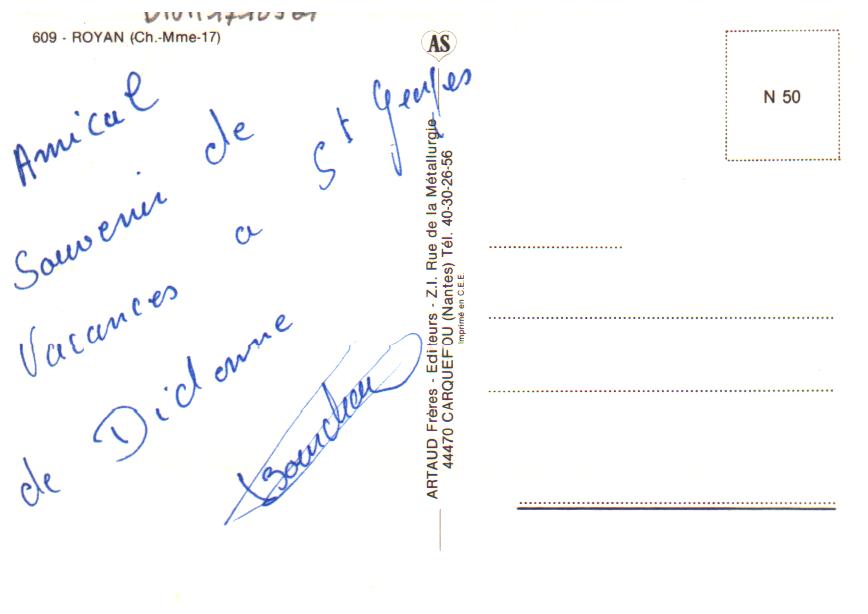 609 - ROYAN (Ch.-Mme-17)
AS
N 50
Amical
Souvenir de
Vacances a St Georges
de Didonne
ARTAUD Frères - Editeurs - Z.I. Rue de la Métallurgie
44470 CARQUEFOU (Nantes) Tél. 40-30-26-56
Imprimé en C.E.E.